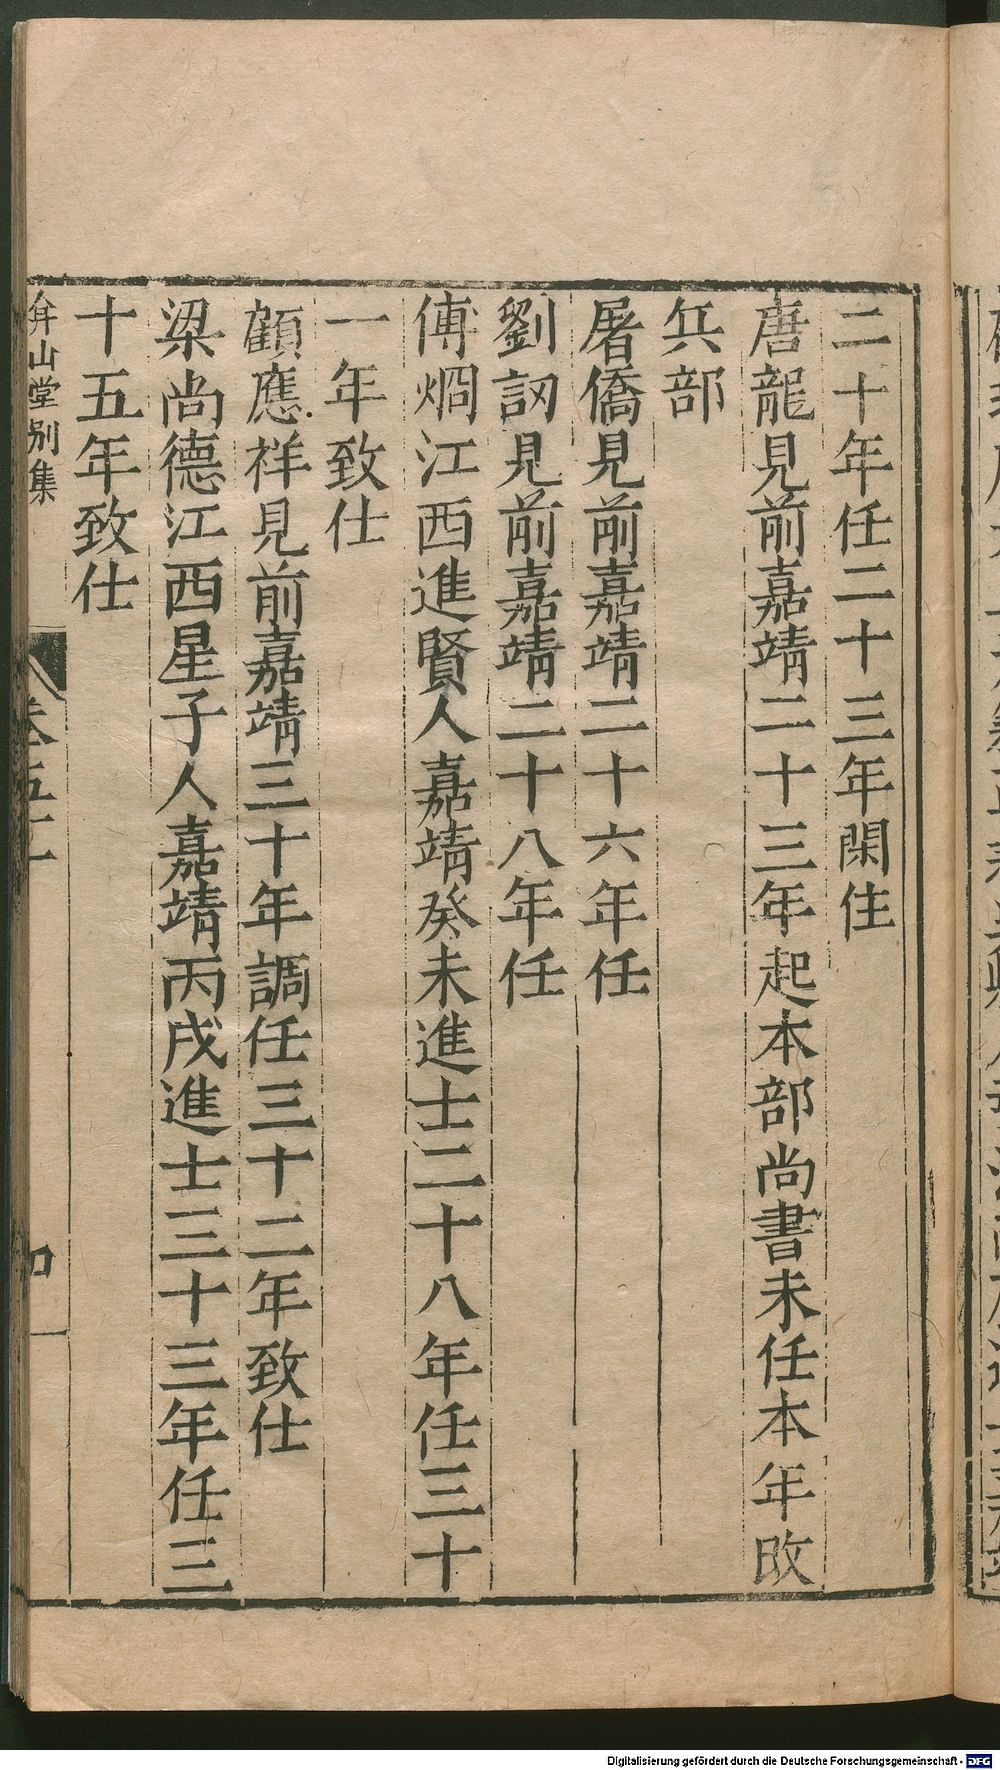 二十年任二十三年閑住
唐龍見前嘉靖二十三年起本部尚書未任本年改
兵部
屠僑見前嘉靖二十六年任
劉訒見前嘉靖二十八年任
傅炯江西進賢人嘉靖癸未進士二十八年任三十
一年致仕
顧應祥見前嘉靖三十年調任三十二年致仕
梁尚德江西星子人嘉靖丙戌進士三十三年任三
十五年致仕
弇山堂别集
卷五十
Digitalisierung gefördert durch die Deutsche Forschungsgemeinschaft - DFG